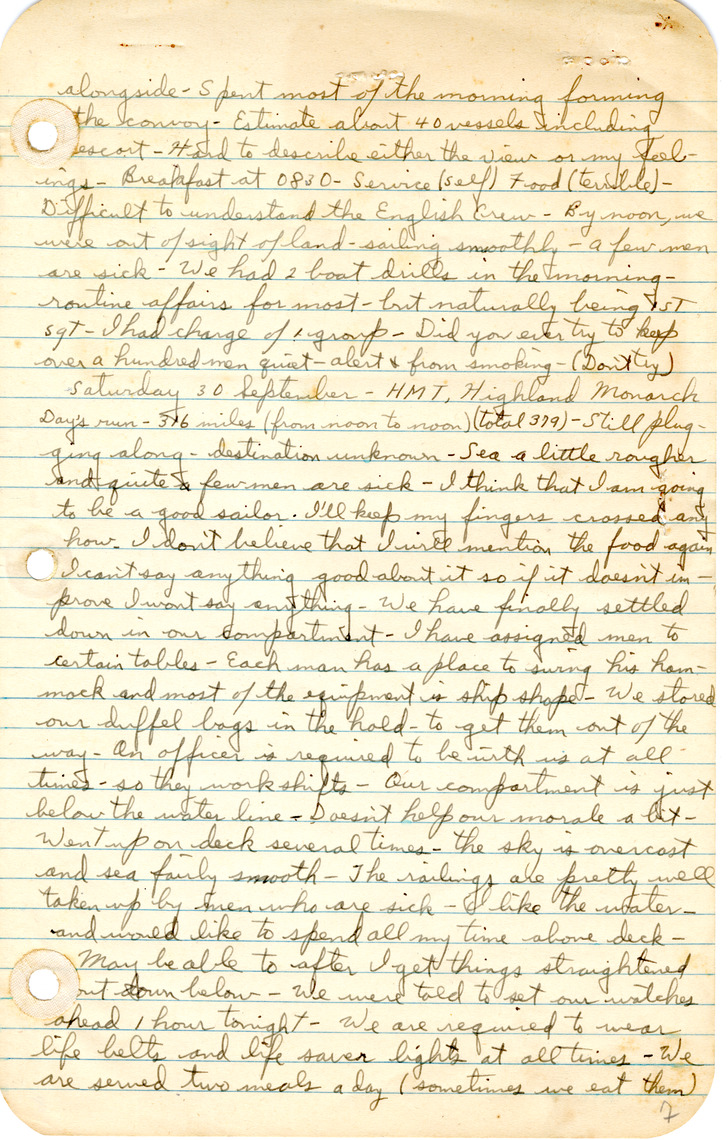 alongside - Spent most of the morning forming
the convoy - Estimate about 40 vessels including
escort - Hard to describe either the view or my feel-
ings - Breakfast at 0830 - Service (self) Food (terrible) -
Difficult to understand the English Crew - By noon, we
were out of sight of land - sailing smoothly - a few men
are sick - We had 2 boat drills in the morning -
routine affairs for most - but naturally being 1ST
Sgt - I had charge of 1 group - Did you ever try to keep
over a hundred men quiet - alert & from smoking - (Don't try)
Saturday 30 September - HMT, Highland Monarch
Day's run - 316 miles (from noon to noon) (total 379) - Still plug-
ging along - destination unknown - Sea a little rougher
and quite a few men are sick - I think that I am going
to be a good sailor. I'll keep my fingers crossed any
how. I don't believe that I will mention the food again
I can't say anything good about it so if it doesn't im-
prove I wont say anything - We have finally settled
down in our compartment - I have assigned men to
certain tables - Each man has a place to swing his ham-
mock and most of the equipment is ship shape - We stored
our duffel bags in the hold - to get them out of the
way - An officer is required to be with us at all
times - so they work shifts - Our compartment is just
below the water line - Doesn't help our morale a bit -
Went up on deck several times - the sky is overcast
and sea fairly smooth - The railings are pretty well
taken up by men who are sick - I like the water -
and would like to spend all my time above deck -
May be able to after I get things straightened
out down below - We were told to set our watches
ahead 1 hour tonight - We are required to wear
life belts and life saver lights at all times - We
are served two meals a day (sometimes we eat them)
7